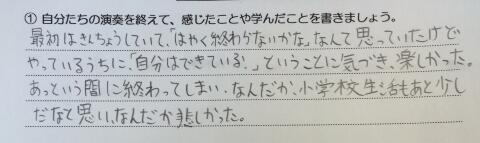 ① 自分たちの演奏を終えて、感じたことや学んだことを書きましょう。
最初はきんちょうしていて、「はやく終わらないかな。」なんて思っていたけど
やっているうちに「自分はできている！」ということに気づき、楽しかった。
あっという間に終わってしまい、なんだか、小学校生活もあと少し
だなと思い、なんだか悲しかった。